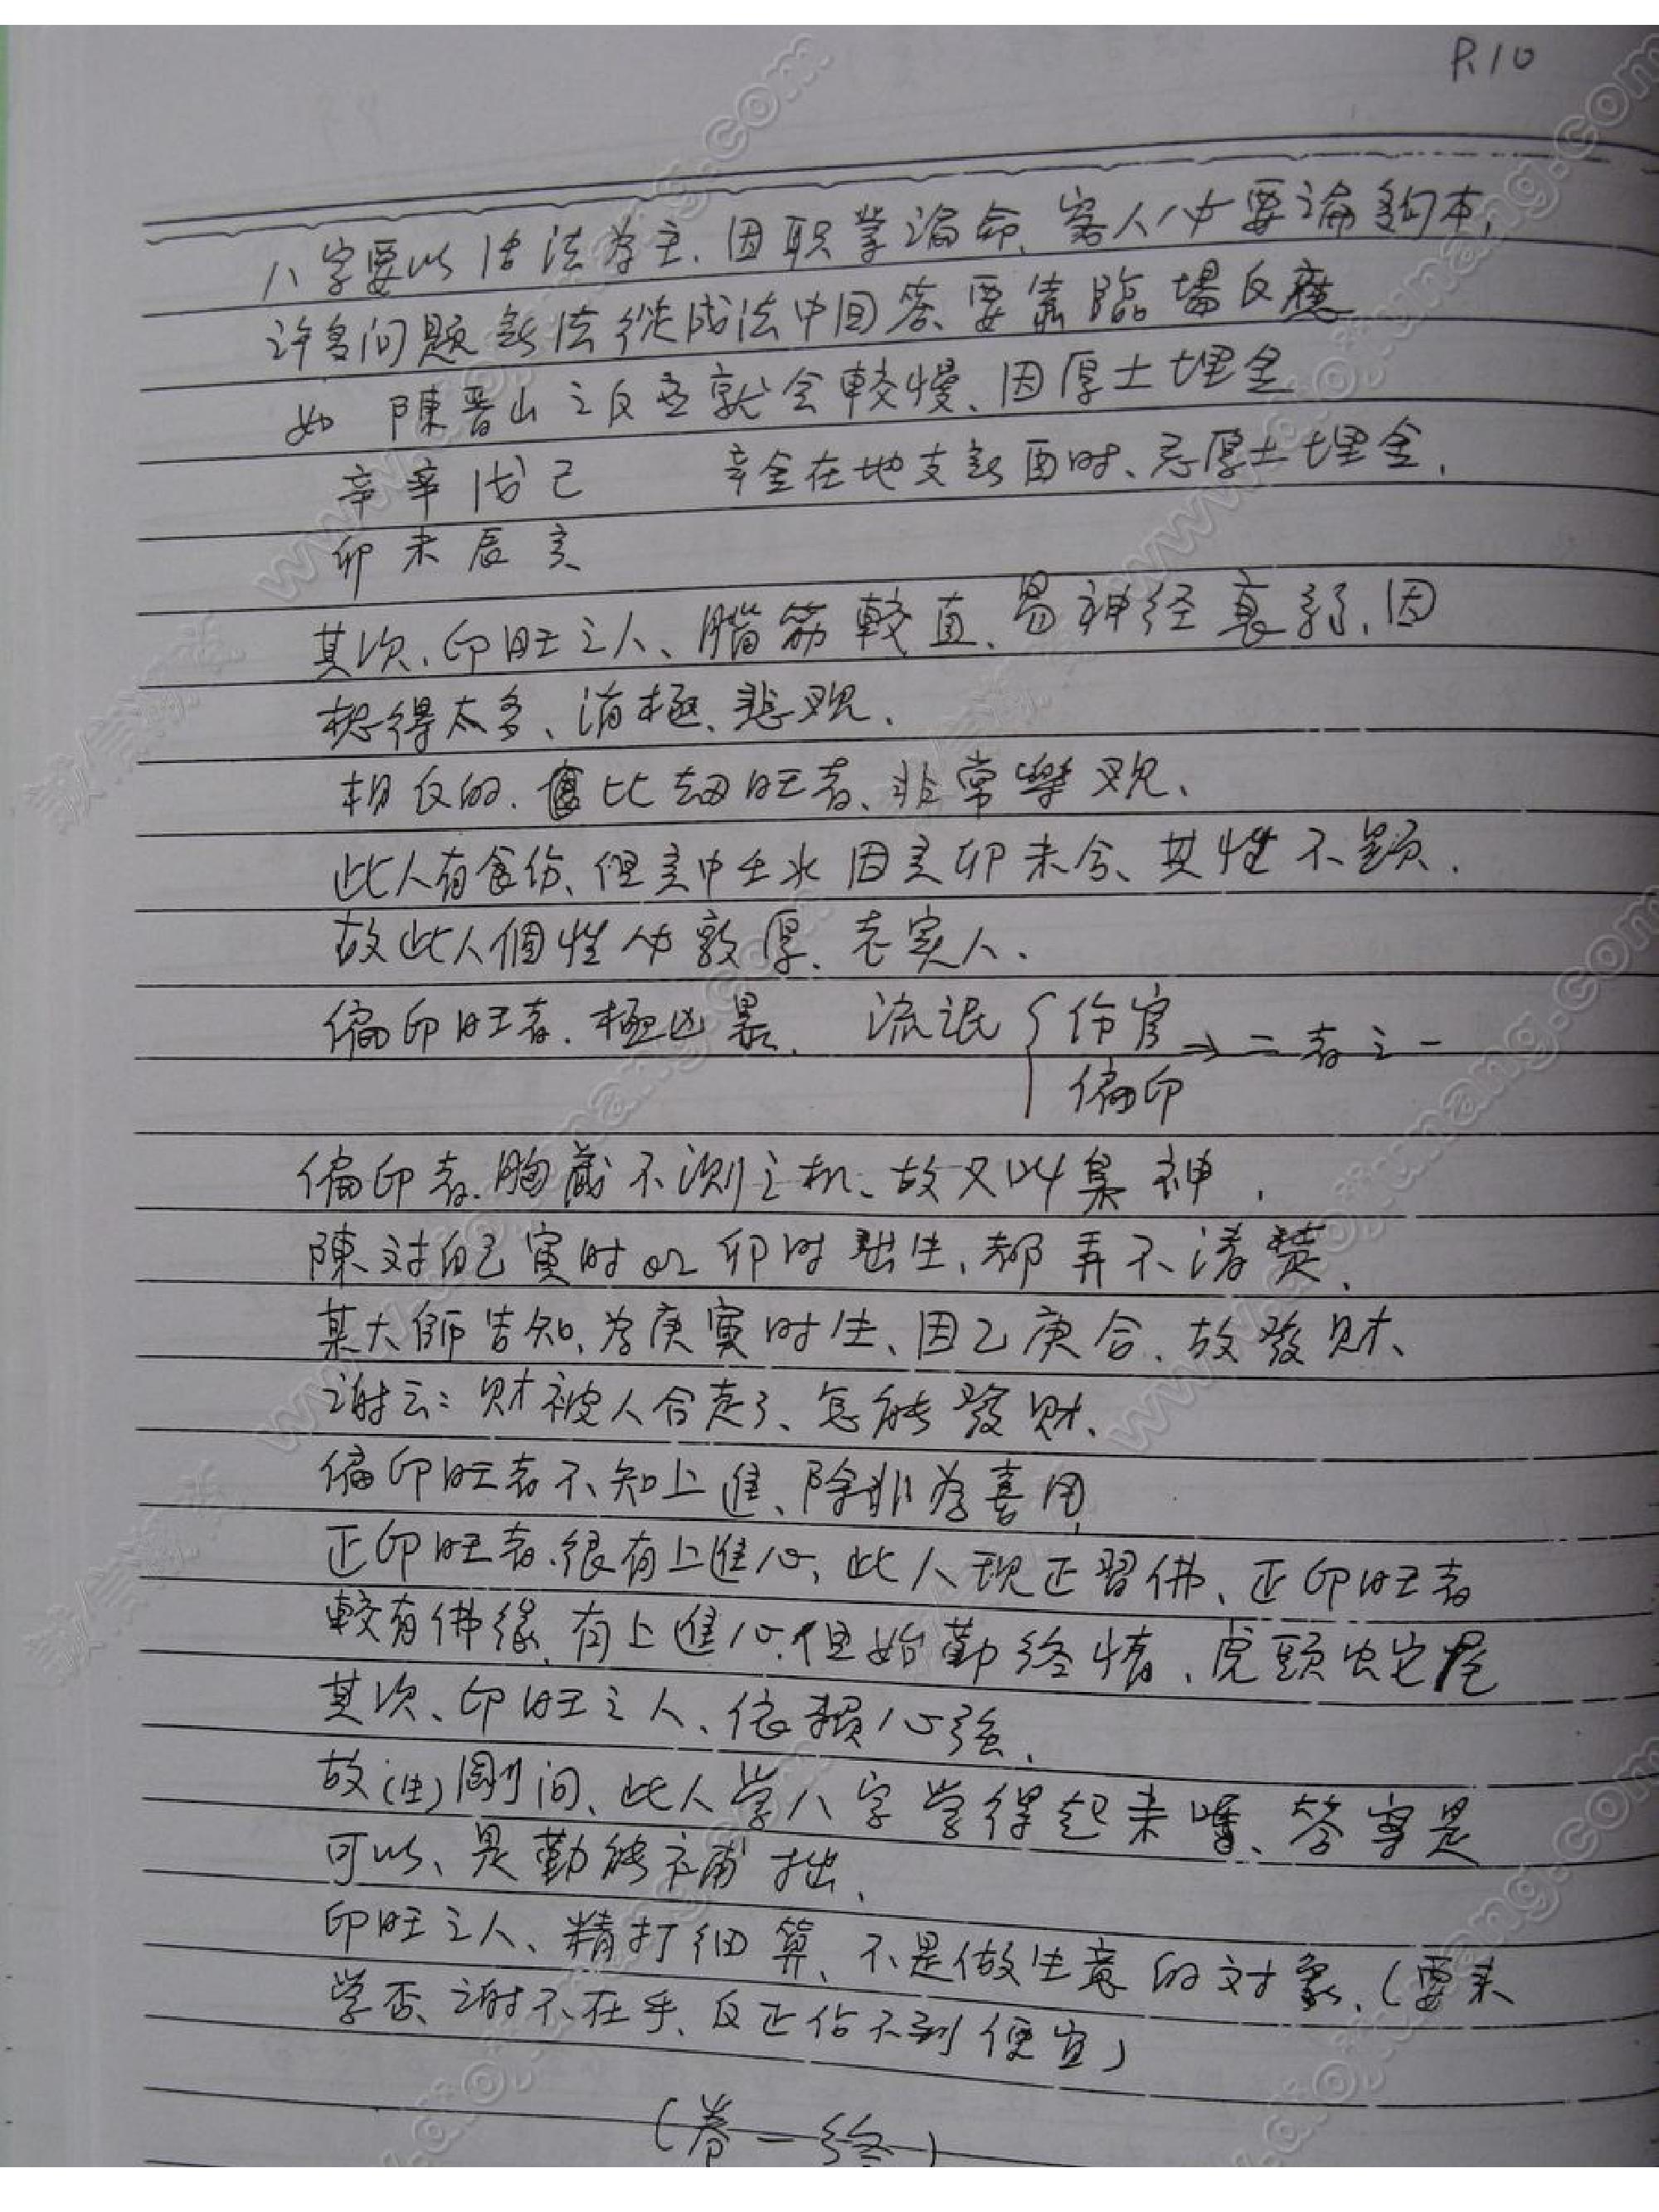 P.10
八字要以活法為主、因职業論命、客人必要論夠本、
許多问题無法從成法中回答、要靠臨場反應
如 陳晋山之反應就会較慢、因厚土埋金
辛辛戊己 辛金在地支無酉时、忌厚土埋金、
卯未辰亥
其次、印旺之人、腦筋較直、易神经衰弱、因
想得太多、消極、悲观、
相反的、比劫旺者、非常樂观、
此人有食伤、但亥中壬水因亥卯未合、其性不顕、
故此人個性必敦厚、老実人、
偏印旺者、極凶暴、 流氓{伤官 → 二者之一
偏印
偏印者、胸藏不測之机、故又叫梟神、
陳对自己寅时or卯时出生、都弄不清楚、
某大師告知、為庚寅时生、因乙庚合、故發财、
谢云：财被人合走了、怎能發财、
偏印旺者不知上進、除非為喜用、
正印旺者、很有上進心、此人現正習佛、正印旺者
較有佛缘、有上進心、但始勤终惰、虎頭蛇尾
其次、印旺之人、依賴心强、
故(生)剛问、此人学八字学得起来嗎、答案是
可以、是勤能補拙、
印旺之人、精打细算、不是做生意的对象、(要来
学否、谢不在乎、反正佔不到便宜)
(卷一终)
www.aiojiunang.com